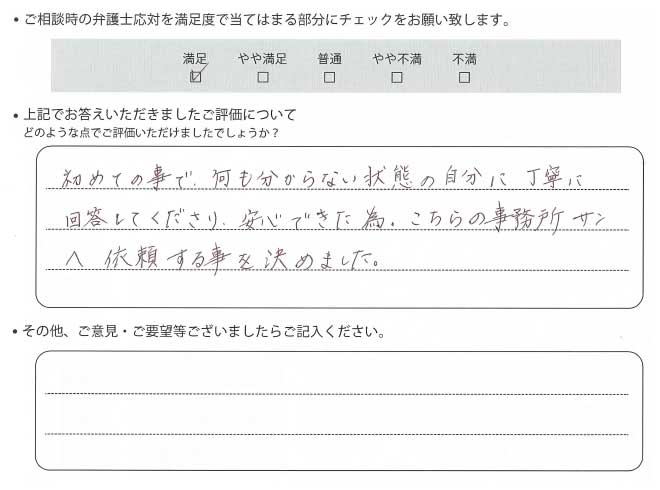 • ご相談時の弁護士応対を満足度で当てはまる部分にチェックをお願い致します。
満足 やや満足 普通 やや不満 不満
☑ ☐ ☐ ☐ ☐
• 上記でお答えいただきましたご評価について
どのような点でご評価いただけましたでしょうか？
初めての事で、何も分からない状態の自分に丁寧に
回答してくださり、安心できた為。こちらの事務所サン
へ依頼する事を決めました。
• その他、ご意見・ご要望等ございましたらご記入ください。